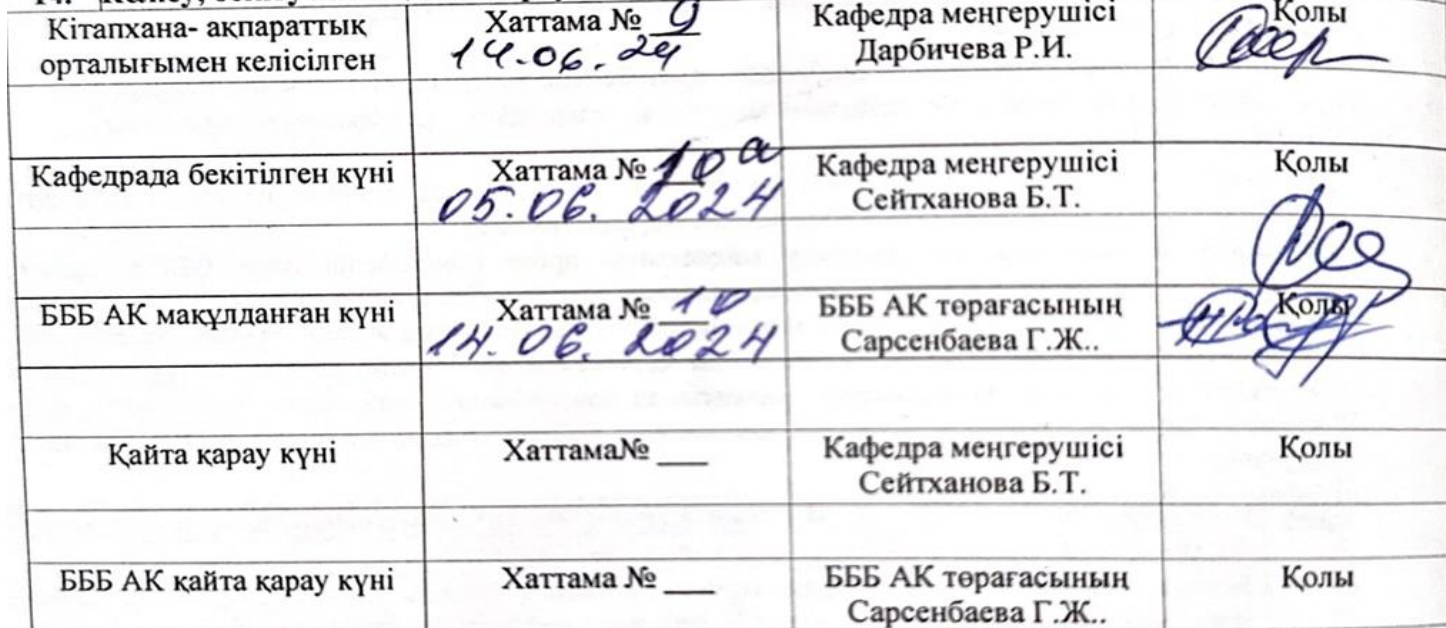 14.
Кітапхана- ақпараттық
орталығымен келісілген
Хаттама № 9
14.06.24
Кафедра меңгерушісі
Дарбичева Р.И.
Қолы
Кафедрада бекітілген күні
Хаттама № 10а
05.06. 2024
Кафедра меңгерушісі
Сейтханова Б.Т.
Қолы
БББ АК мақұлданған күні
Хаттама № 10
14.06.2024
БББ АК төрағасының
Сарсенбаева Г.Ж..
Қолы
Қайта қарау күні
Хаттама№ ___
Кафедра меңгерушісі
Сейтханова Б.Т.
Қолы
БББ АК қайта қарау күні
Хаттама № ___
БББ АК төрағасының
Сарсенбаева Г.Ж..
Қолы